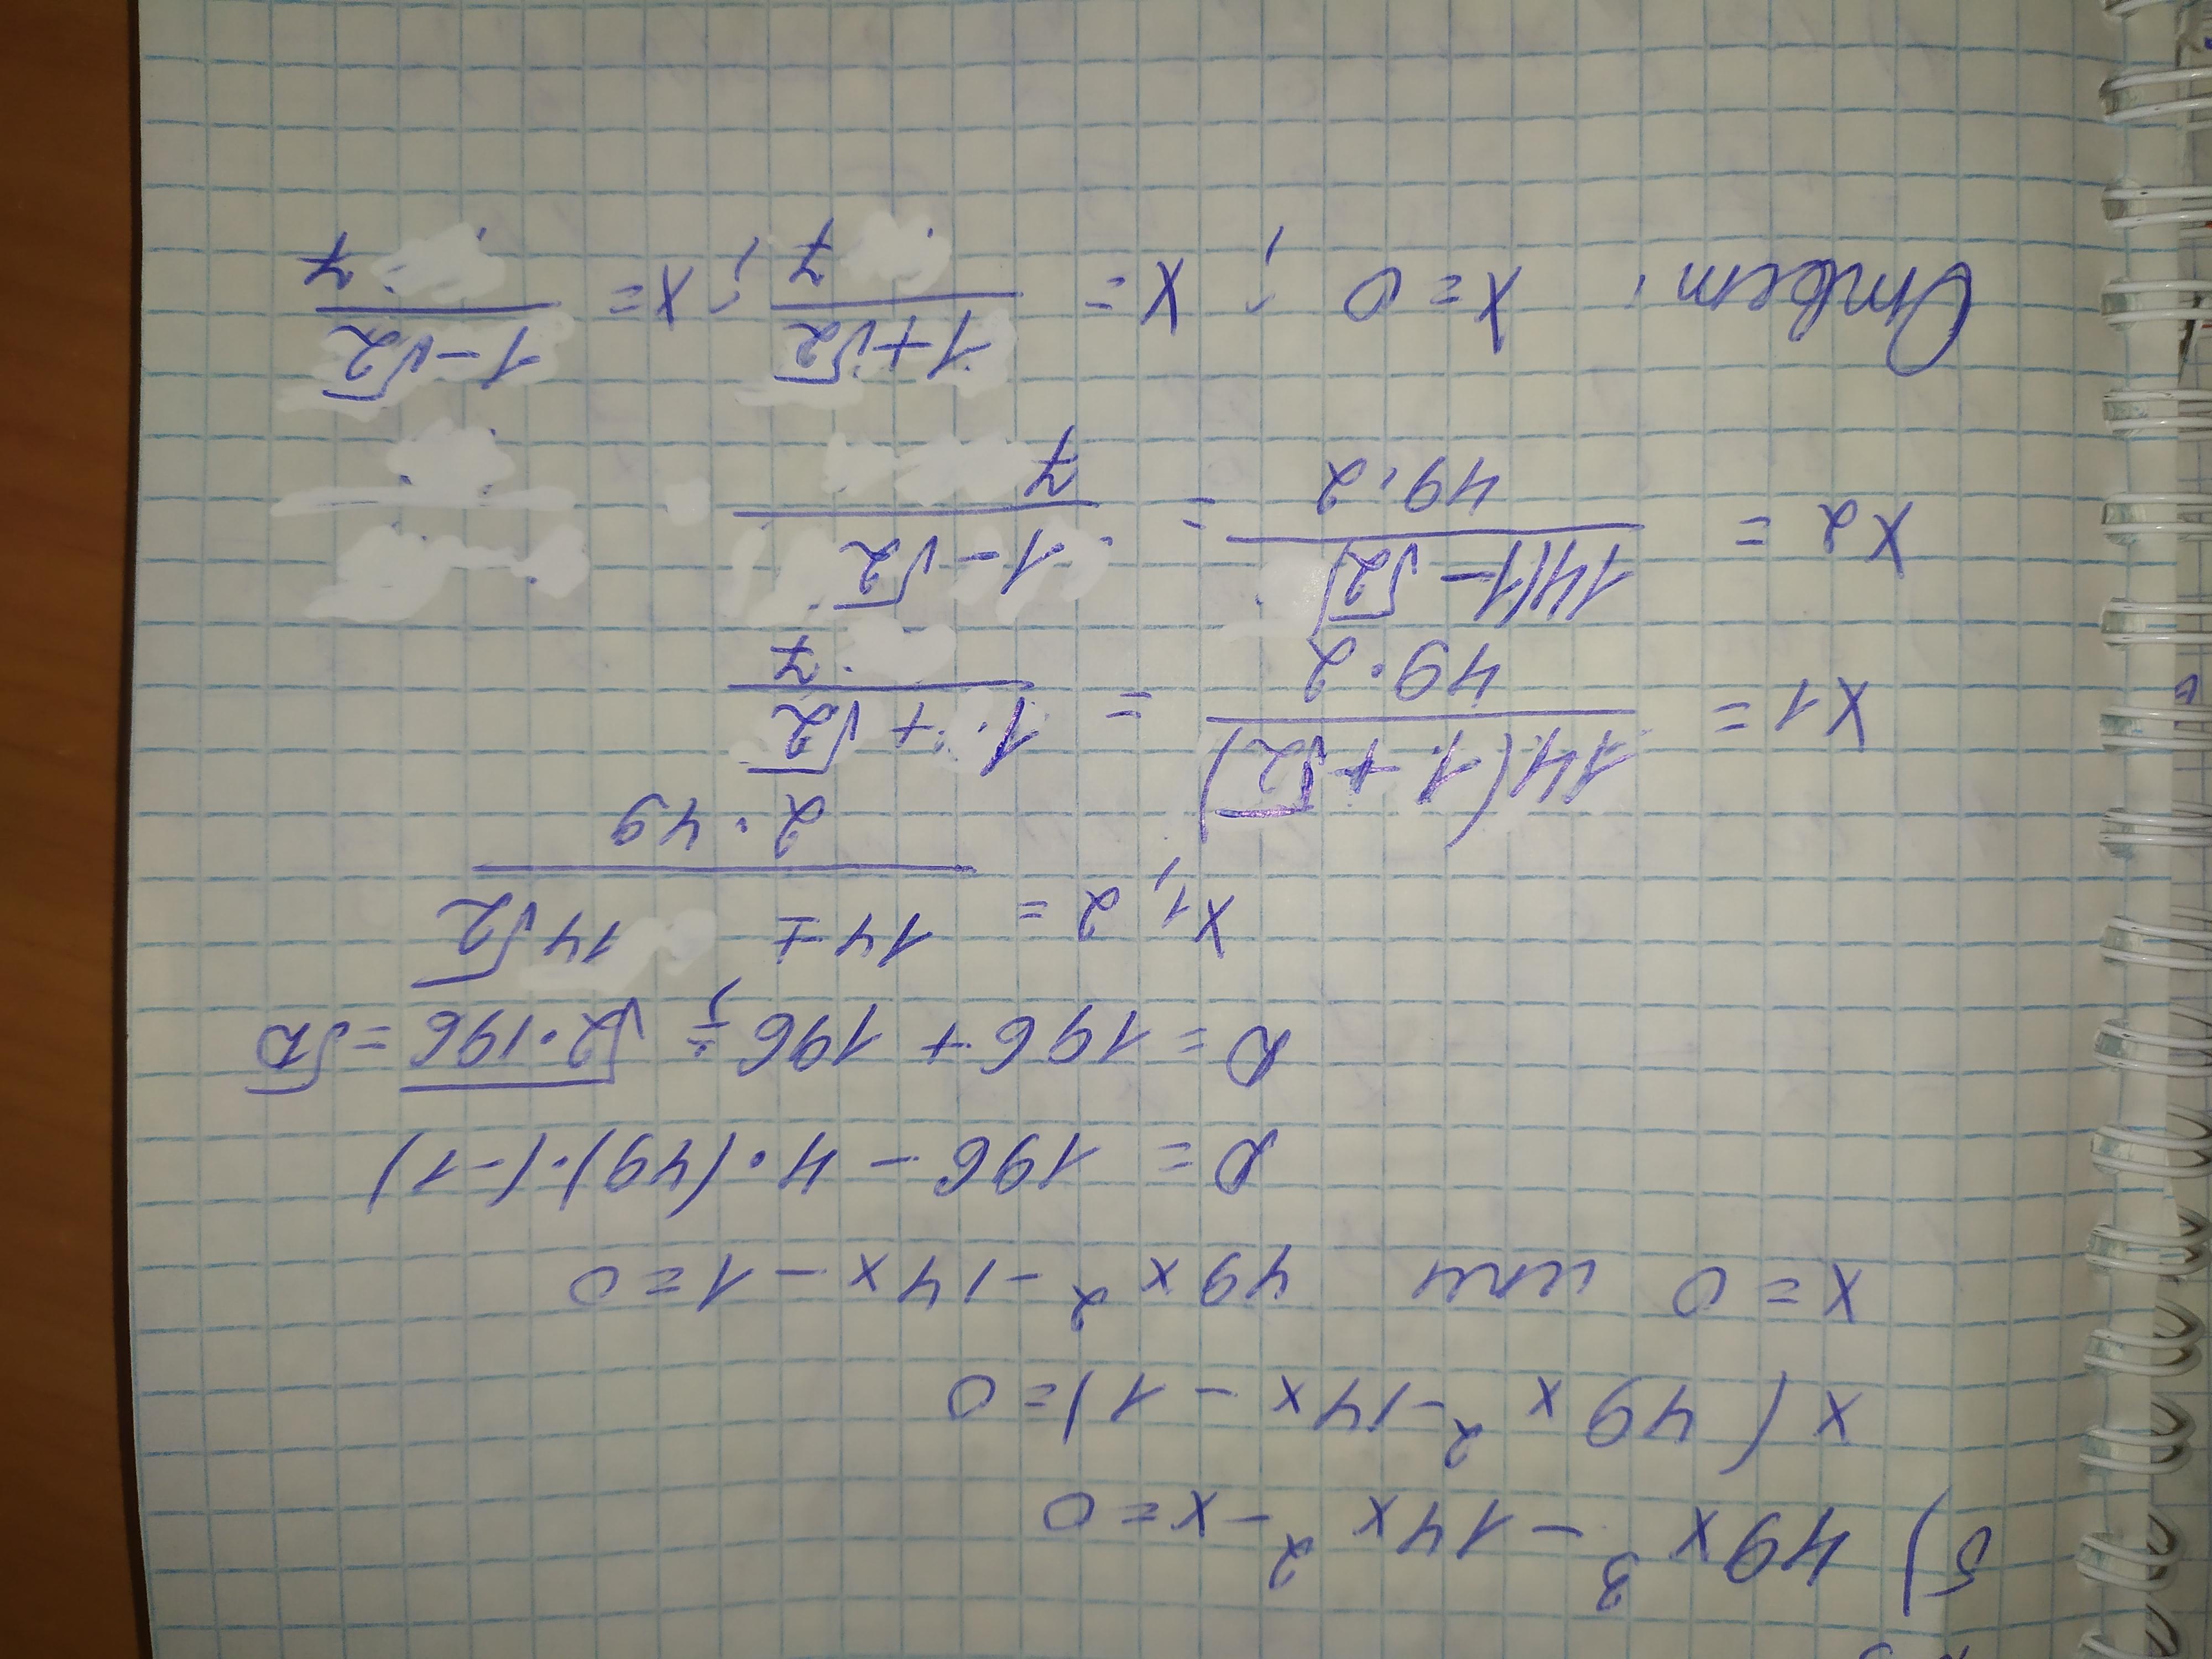 б) 49x³ - 14x² - x = 0
x(49x² - 14x - 1) = 0
x = 0 или 49x² - 14x - 1 = 0
D = 196 - 4·(49)·(-1)
D = 196 + 196 = √2·196 = √D
x1,2 = (14 ± 14√2)/(2·49)
x1 = 14(1+√2)/(49·2) = (1+√2)/7
x2 = 14(1-√2)/(49·2) = (1-√2)/7
Ответ: x=0; x = (1+√2)/7; x = (1-√2)/7